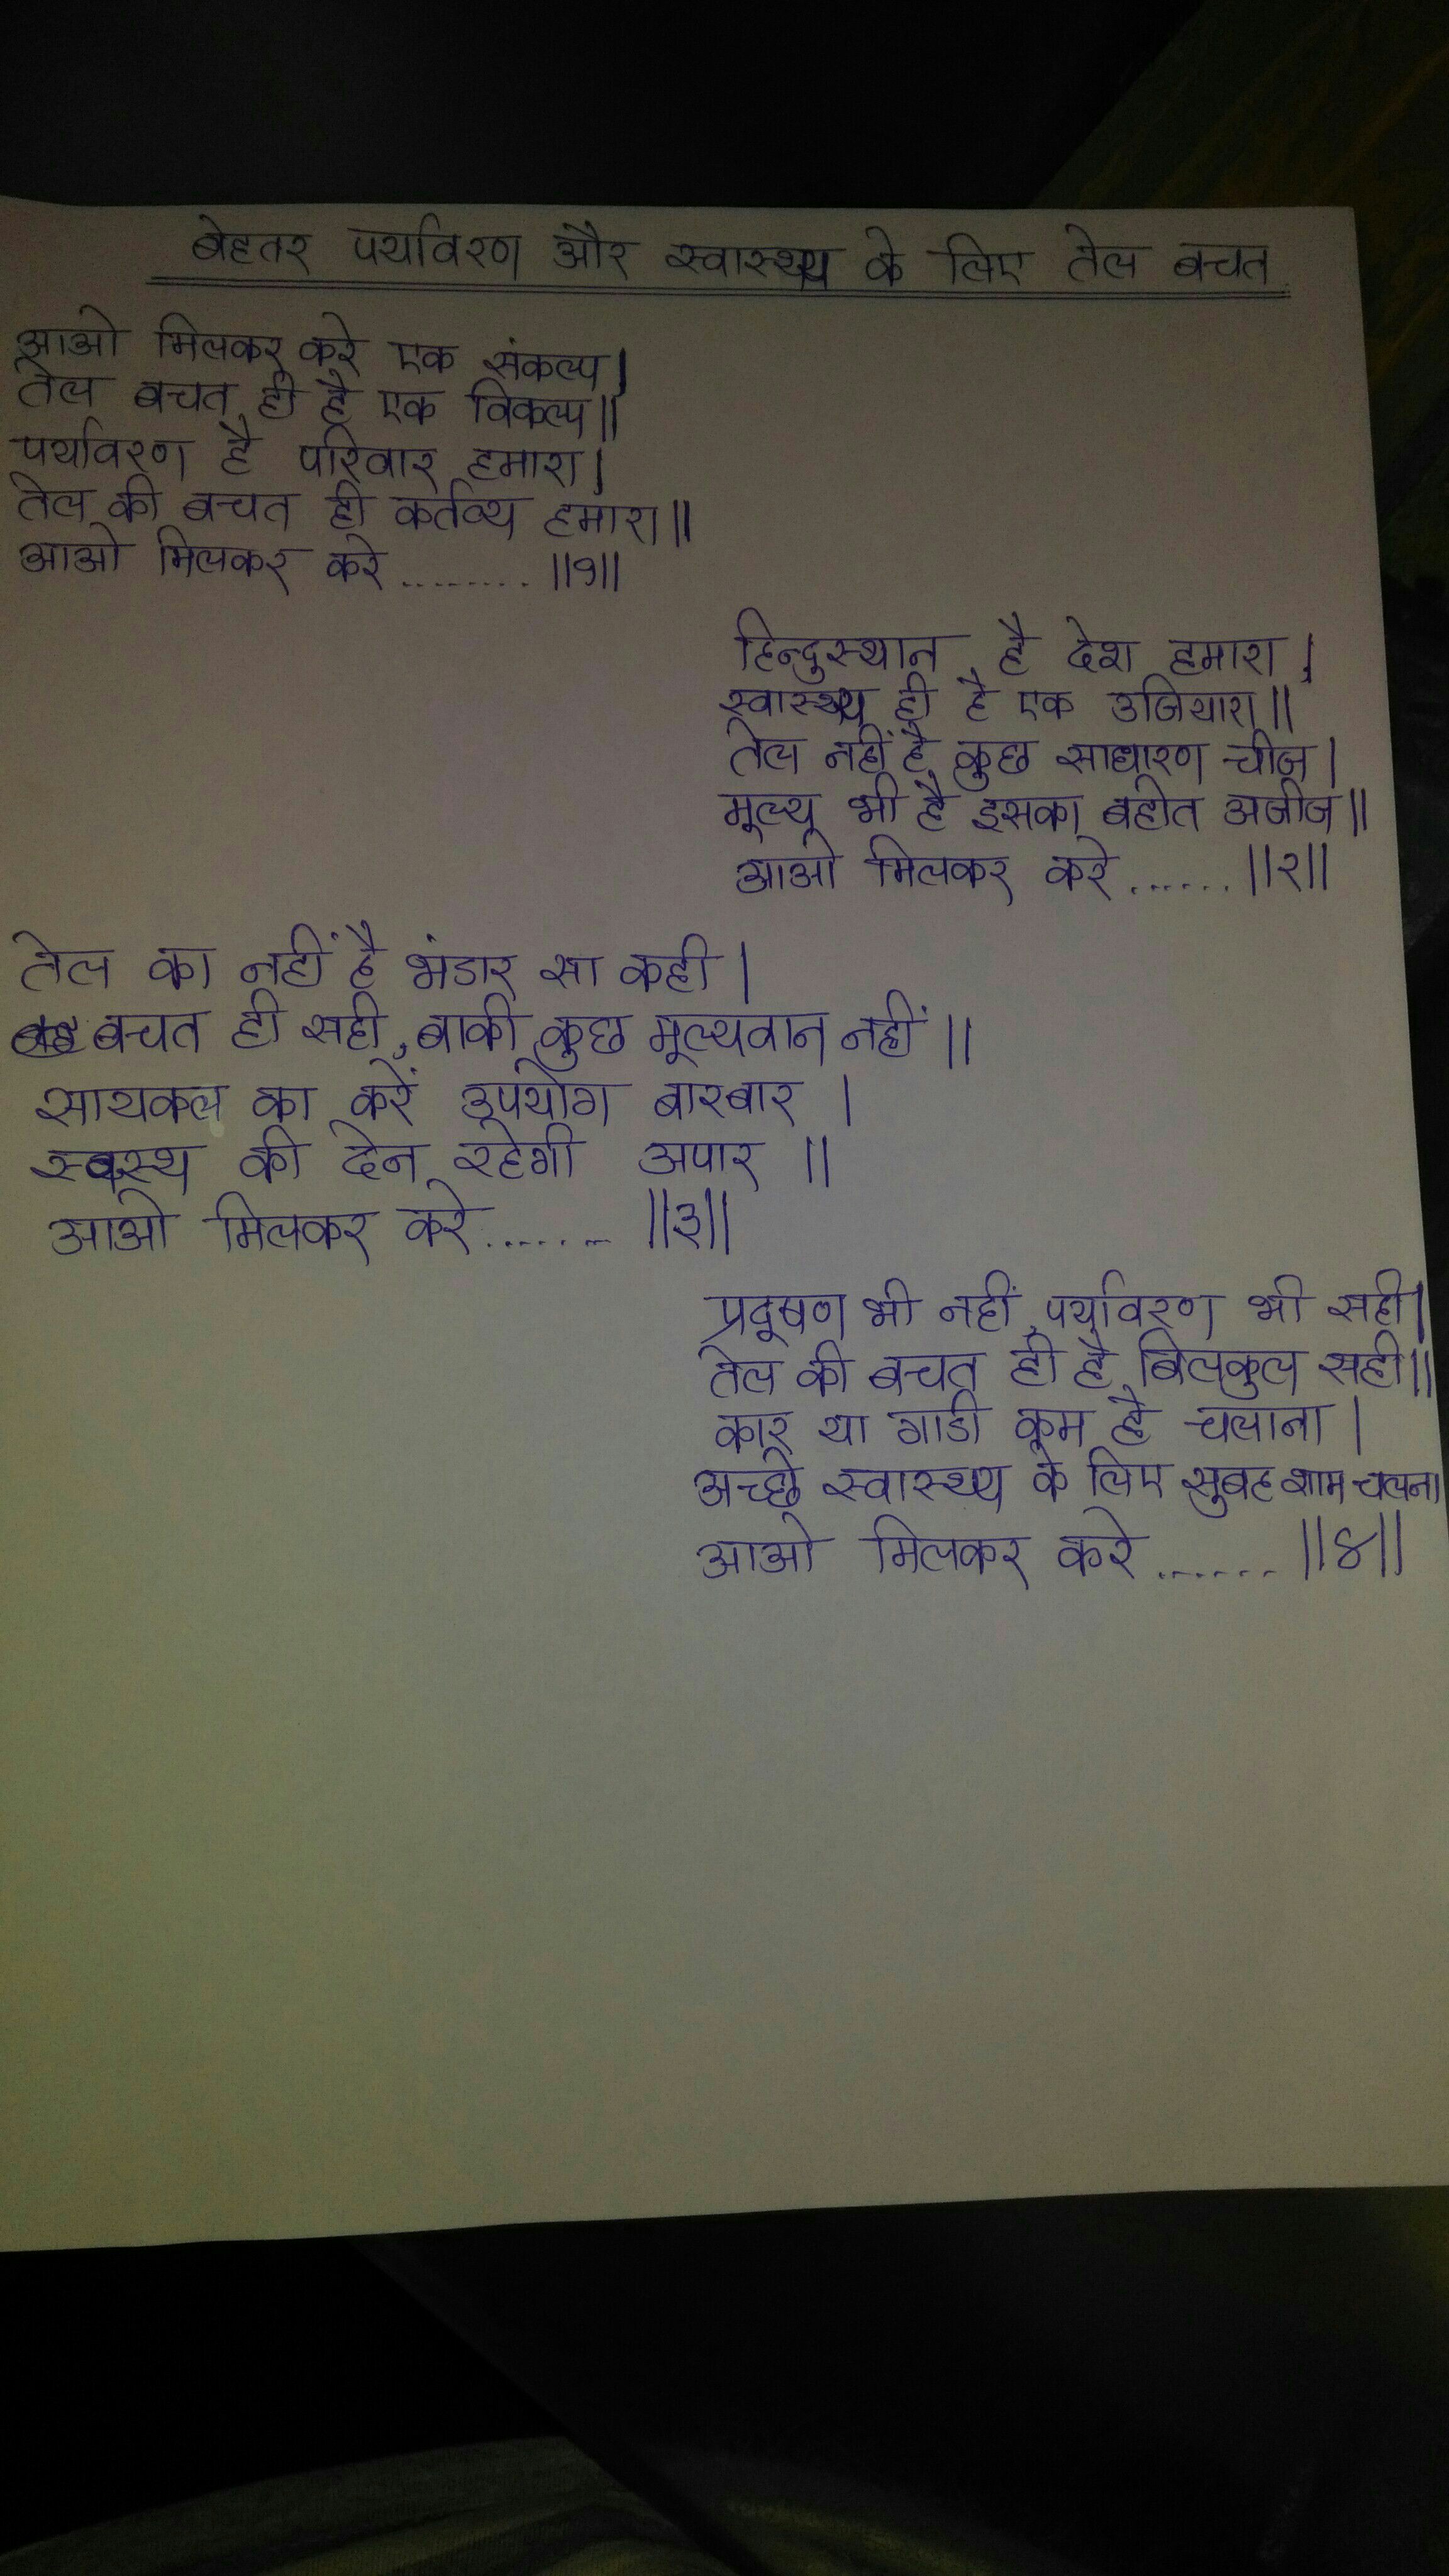 बेहतर पर्यावरण और स्वास्थ्य के लिए तेल बचत
आओ मिलकर करे एक संकल्प।
तेल बचत ही है एक विकल्प॥
पर्यावरण है परिवार हमारा।
तेल की बचत ही कर्तव्य हमारा॥
आओ मिलकर करे ........ ॥१॥
हिन्दुस्थान है देश हमारा।
स्वास्थ्य ही है एक उजियारा॥
तेल नहीं है कुछ साधारण चीज।
मूल्य भी है इसका बहोत अजीज॥
आओ मिलकर करे ...... ॥२॥
तेल का नहीं है भंडार सा कही।
बचत ही सही, बाकी कुछ मूल्यवान नहीं॥
सायकल का करें उपयोग बारबार।
स्वस्थ की देन रहेगी अपार॥
आओ मिलकर करे ....... ॥३॥
प्रदूषण भी नहीं, पर्यावरण भी सही।
तेल की बचत ही है बिलकुल सही॥
कार या गाडी कम है चलाना।
अच्छे स्वास्थ्य के लिए सुबह शाम चलना।
आओ मिलकर करे ....... ॥४॥